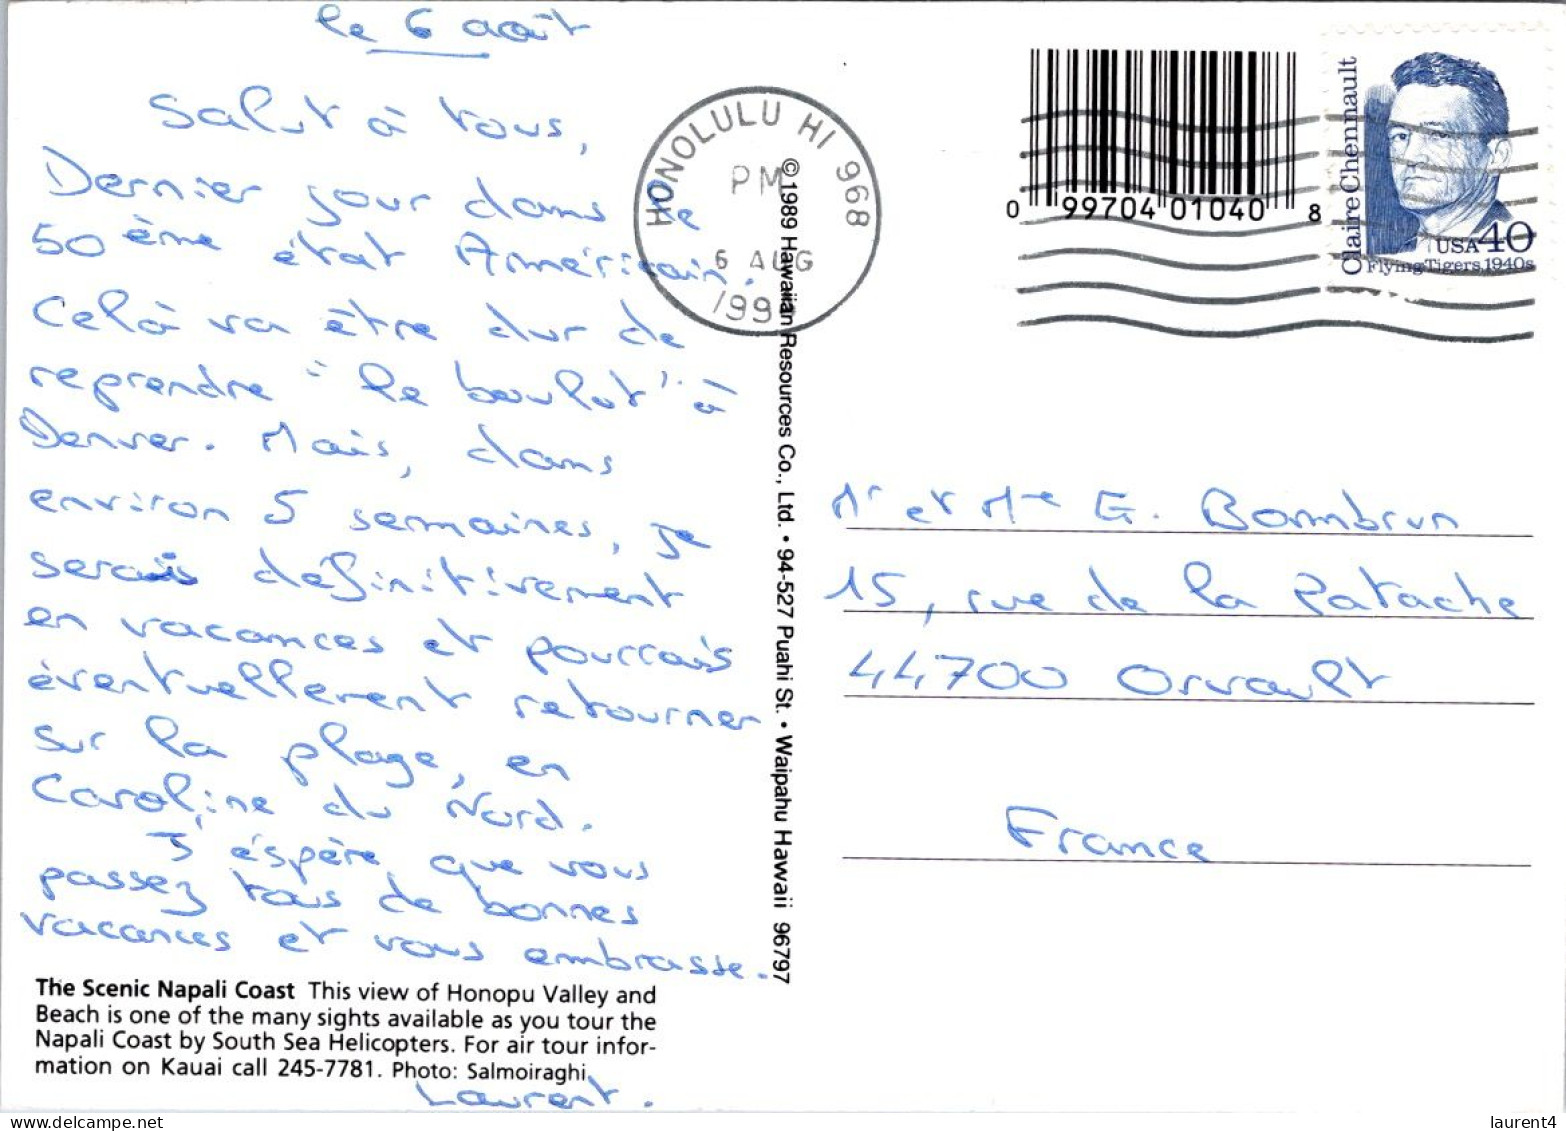 le 6 août
Salut à tous,
Dernier jour dans le
50 ème état Américain.
Celà va être dur de
reprendre "le boulot" à
Denver. Mais, dans
environ 5 semaines, je
serais définitivement
en vacances et pourrais
éventuellement retourner
sur la plage, en
Caroline du Nord.
J'éspère que vous
passez tous de bonnes
vacances et vous embrasse.
Laurent.
The Scenic Napali Coast This view of Honopu Valley and
Beach is one of the many sights available as you tour the
Napali Coast by South Sea Helicopters. For air tour infor-
mation on Kauai call 245-7781. Photo: Salmoiraghi
© 1989 Hawaiian Resources Co., Ltd. • 94-527 Puahi St. • Waipahu Hawaii 96797
HONOLULU HI 968
PM
6 AUG
199
0 99704 01040 8
Claire Chennault
USA 40
Flying Tigers, 1940s
Mr et Mme G. Bombrun
15, rue de la Patache
44700 Orvault
France
laurent4